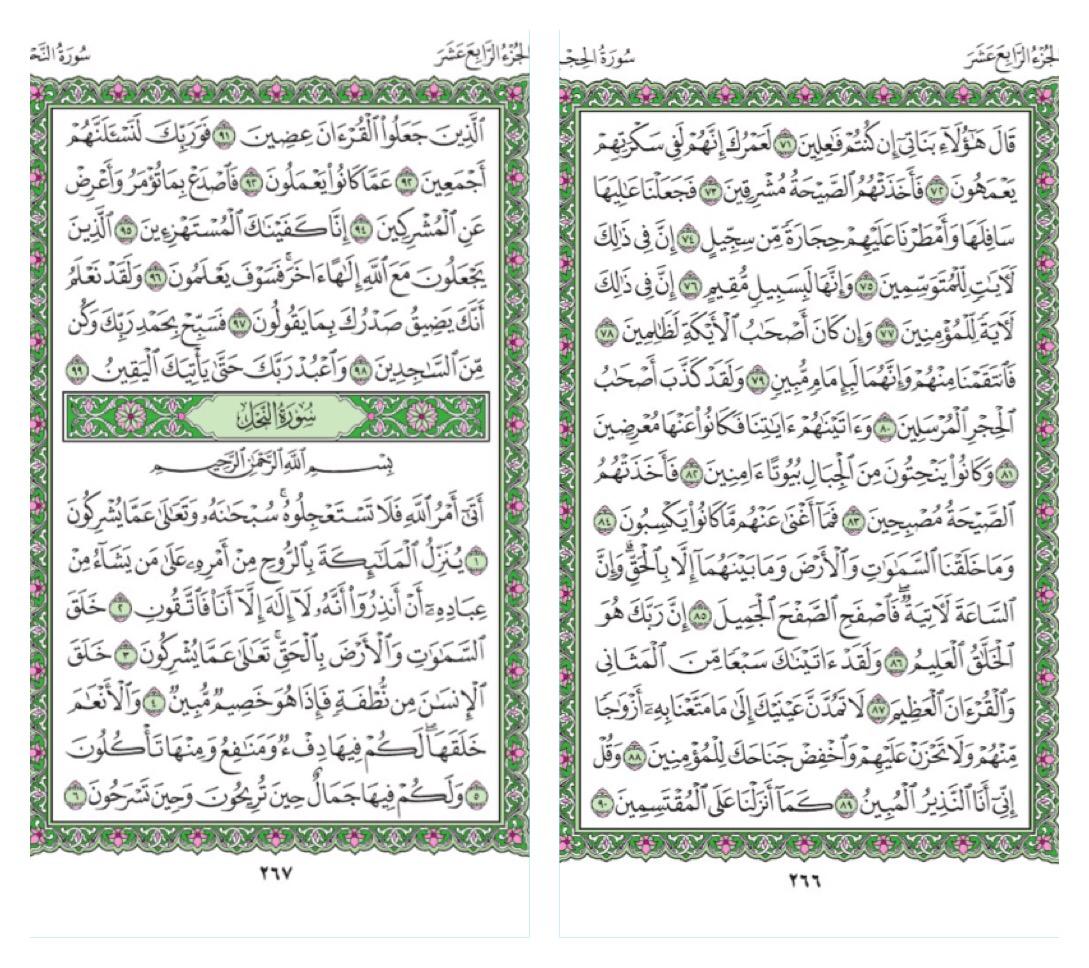 الجزء الرابع عشر
سورة الحجـ
قَالَ هَٰٓؤُلَآءِ بَنَاتِىٓ إِن كُنتُمْ فَٰعِلِينَ ٧١ لَعَمْرُكَ إِنَّهُمْ لَفِى سَكْرَتِهِمْ
يَعْمَهُونَ ٧٢ فَأَخَذَتْهُمُ ٱلصَّيْحَةُ مُشْرِقِينَ ٧٣ فَجَعَلْنَا عَٰلِيَهَا
سَافِلَهَا وَأَمْطَرْنَا عَلَيْهِمْ حِجَارَةً مِّن سِجِّيلٍ ٧٤ إِنَّ فِى ذَٰلِكَ
لَءَايَٰتٍ لِّلْمُتَوَسِّمِينَ ٧٥ وَإِنَّهَا لَبِسَبِيلٍ مُّقِيمٍ ٧٦ إِنَّ فِى ذَٰلِكَ
لَءَايَةً لِّلْمُؤْمِنِينَ ٧٧ وَإِن كَانَ أَصْحَٰبُ ٱلْأَيْكَةِ لَظَٰلِمِينَ ٧٨
فَٱنتَقَمْنَا مِنْهُمْ وَإِنَّهُمَا لَبِإِمَامٍ مُّبِينٍ ٧٩ وَلَقَدْ كَذَّبَ أَصْحَٰبُ
ٱلْحِجْرِ ٱلْمُرْسَلِينَ ٨٠ وَءَاتَيْنَٰهُمْ ءَايَٰتِنَا فَكَانُوا۟ عَنْهَا مُعْرِضِينَ
٨١ وَكَانُوا۟ يَنْحِتُونَ مِنَ ٱلْجِبَالِ بُيُوتًا ءَامِنِينَ ٨٢ فَأَخَذَتْهُمُ
ٱلصَّيْحَةُ مُصْبِحِينَ ٨٣ فَمَآ أَغْنَىٰ عَنْهُم مَّا كَانُوا۟ يَكْسِبُونَ ٨٤
وَمَا خَلَقْنَا ٱلسَّمَٰوَٰتِ وَٱلْأَرْضَ وَمَا بَيْنَهُمَآ إِلَّا بِٱلْحَقِّ ۗ وَإِنَّ
ٱلسَّاعَةَ لَءَاتِيَةٌ ۖ فَٱصْفَحِ ٱلصَّفْحَ ٱلْجَمِيلَ ٨٥ إِنَّ رَبَّكَ هُوَ
ٱلْخَلَّٰقُ ٱلْعَلِيمُ ٨٦ وَلَقَدْ ءَاتَيْنَٰكَ سَبْعًا مِّنَ ٱلْمَثَانِى
وَٱلْقُرْءَانَ ٱلْعَظِيمَ ٨٧ لَا تَمُدَّنَّ عَيْنَيْكَ إِلَىٰ مَا مَتَّعْنَا بِهِۦٓ أَزْوَٰجًا
مِّنْهُمْ وَلَا تَحْزَنْ عَلَيْهِمْ وَٱخْفِضْ جَنَاحَكَ لِلْمُؤْمِنِينَ ٨٨ وَقُلْ
إِنِّىٓ أَنَا ٱلنَّذِيرُ ٱلْمُبِينُ ٨٩ كَمَآ أَنزَلْنَا عَلَى ٱلْمُقْتَسِمِينَ ٩٠
٢٦٦
الجزء الرابع عشر
سورة النحـ
ٱلَّذِينَ جَعَلُوا۟ ٱلْقُرْءَانَ عِضِينَ ٩١ فَوَرَبِّكَ لَنَسْـَٔلَنَّهُمْ
أَجْمَعِينَ ٩٢ عَمَّا كَانُوا۟ يَعْمَلُونَ ٩٣ فَٱصْدَعْ بِمَا تُؤْمَرُ وَأَعْرِضْ
عَنِ ٱلْمُشْرِكِينَ ٩٤ إِنَّا كَفَيْنَٰكَ ٱلْمُسْتَهْزِءِينَ ٩٥ ٱلَّذِينَ
يَجْعَلُونَ مَعَ ٱللَّهِ إِلَٰهًا ءَاخَرَ ۚ فَسَوْفَ يَعْلَمُونَ ٩٦ وَلَقَدْ نَعْلَمُ
أَنَّكَ يَضِيقُ صَدْرُكَ بِمَا يَقُولُونَ ٩٧ فَسَبِّحْ بِحَمْدِ رَبِّكَ وَكُن
مِّنَ ٱلسَّٰجِدِينَ ٩٨ وَٱعْبُدْ رَبَّكَ حَتَّىٰ يَأْتِيَكَ ٱلْيَقِينُ ٩٩
سُورَةُ النَّحْلِ
بِسْمِ ٱللَّهِ ٱلرَّحْمَٰنِ ٱلرَّحِيمِ
أَتَىٰٓ أَمْرُ ٱللَّهِ فَلَا تَسْتَعْجِلُوهُ ۚ سُبْحَٰنَهُۥ وَتَعَٰلَىٰ عَمَّا يُشْرِكُونَ
١ يُنَزِّلُ ٱلْمَلَٰٓئِكَةَ بِٱلرُّوحِ مِنْ أَمْرِهِۦ عَلَىٰ مَن يَشَآءُ مِنْ
عِبَادِهِۦٓ أَنْ أَنذِرُوٓا۟ أَنَّهُۥ لَآ إِلَٰهَ إِلَّآ أَنَا۠ فَٱتَّقُونِ ٢ خَلَقَ
ٱلسَّمَٰوَٰتِ وَٱلْأَرْضَ بِٱلْحَقِّ ۚ تَعَٰلَىٰ عَمَّا يُشْرِكُونَ ٣ خَلَقَ
ٱلْإِنسَٰنَ مِن نُّطْفَةٍ فَإِذَا هُوَ خَصِيمٌ مُّبِينٌ ٤ وَٱلْأَنْعَٰمَ
خَلَقَهَا ۗ لَكُمْ فِيهَا دِفْءٌ وَمَنَٰفِعُ وَمِنْهَا تَأْكُلُونَ
٥ وَلَكُمْ فِيهَا جَمَالٌ حِينَ تُرِيحُونَ وَحِينَ تَسْرَحُونَ ٦
٢٦٧